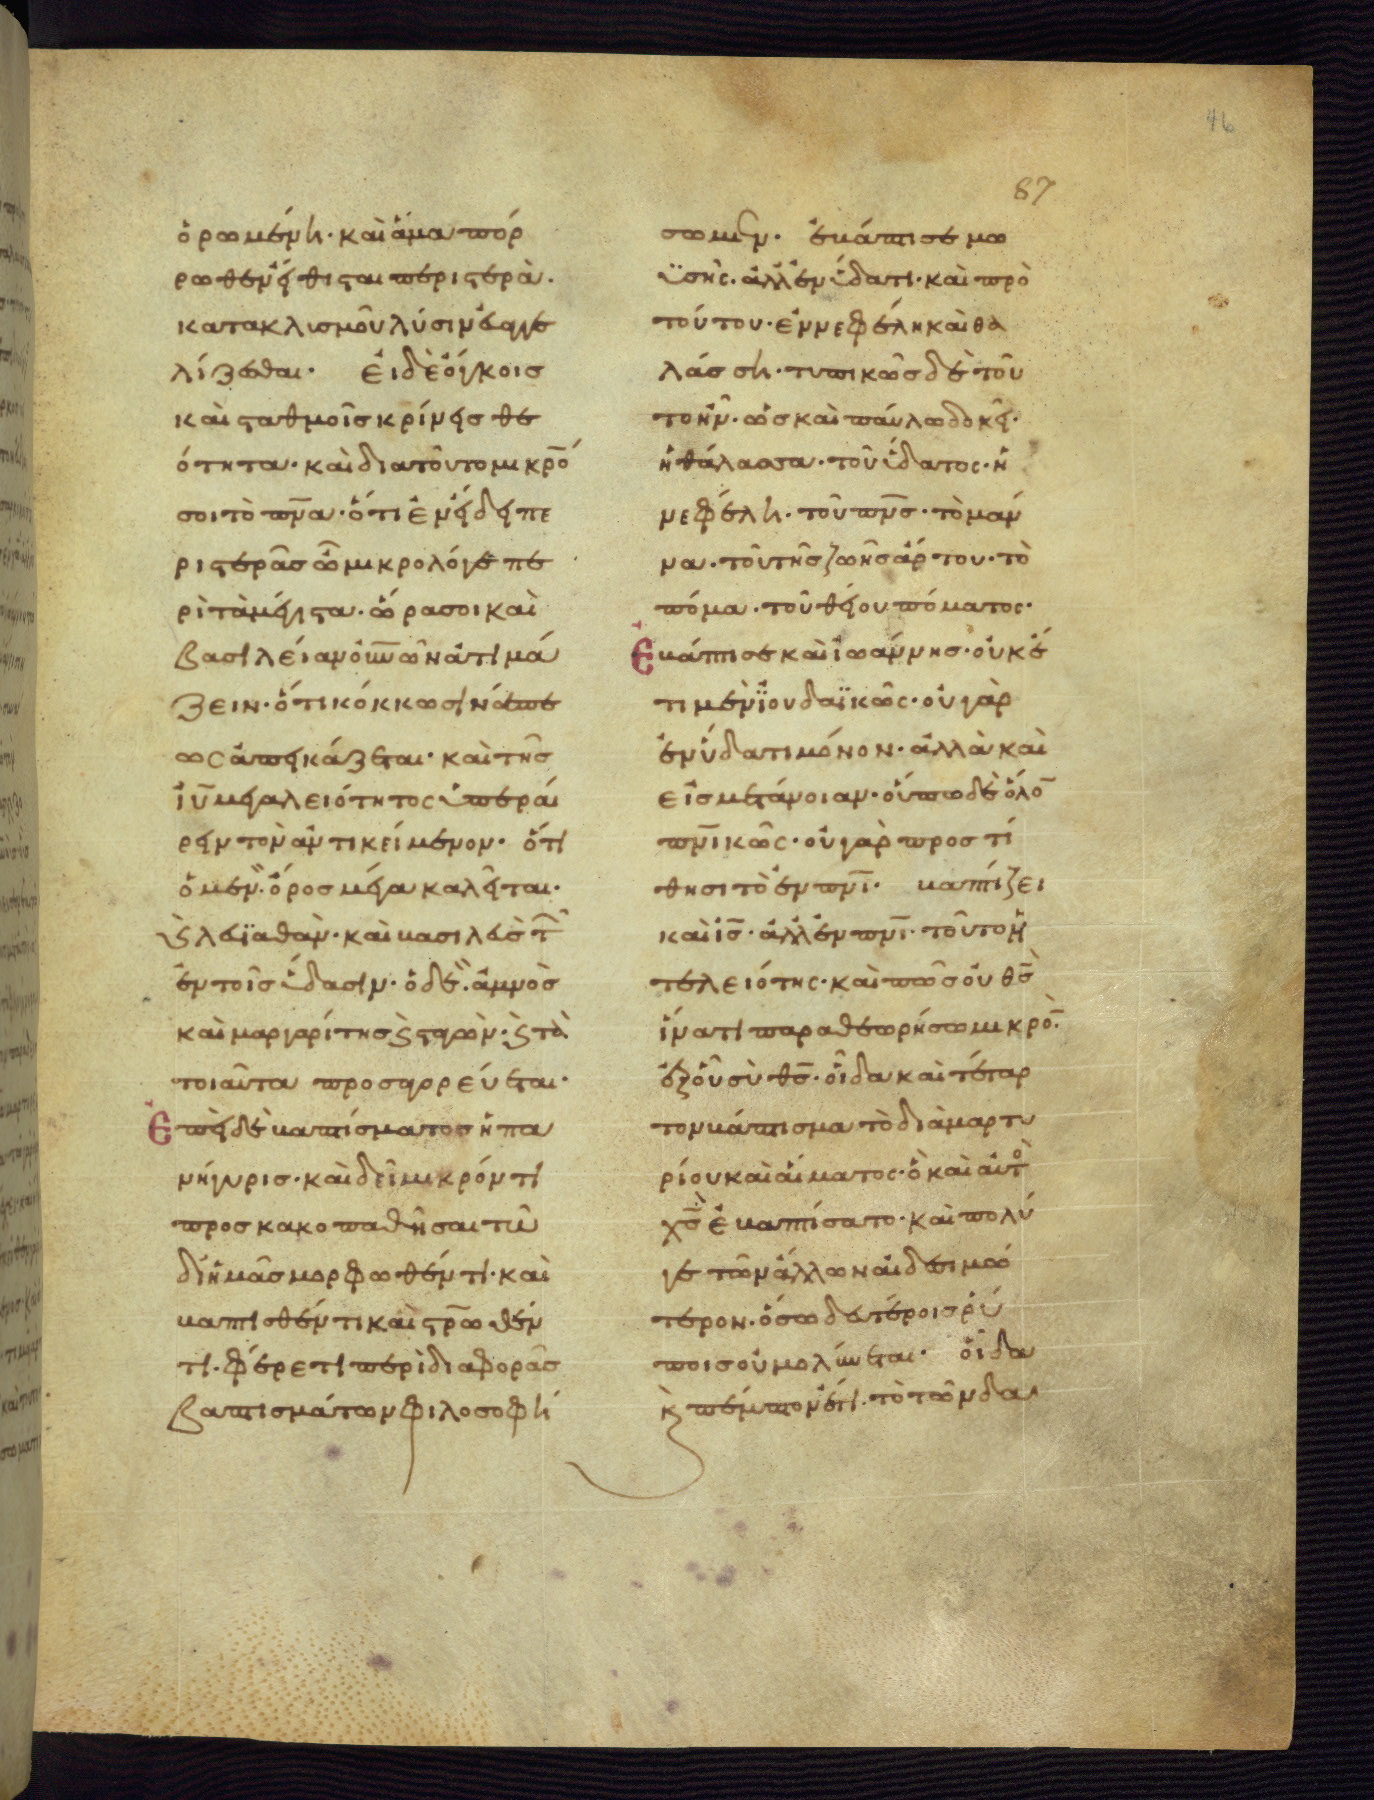 46
87
ὁρωμένη· καὶ ἅμα πόρ
ρωθεν εἴθισται περιστερὰ·
κατακλυσμοῦ λύσιν εὐαγγε
λίζεσθαι· Εἰ δὲ ὄγκοις
καὶ σταθμοῖς κρίνεις θε
ότητα· καὶ διατοῦτο μικρό
σοι τὸ πνᾶ· ὅτι ἐν εἴδει πε
ριστερᾶς ὦ μικρολόγε πε
ρὶ τὰ μέγιστα· ὥρα σοι καὶ
βασιλείαν οὐνῶν ἀτιμά
ζειν· ὅτι κόκκω σινάπε
ως ἀπεικάζεται· καὶ τῆς
ἰῦ μεγαλειότητος ὑπεραί
ρειν τὸν ἀντικείμενον· ὅτι
ὁ μὲν· ὄρος μέγα καλεῖται·
ϗ λεϊαθὰν· καὶ βασιλεὺς τῶ
ἐν τοῖς ὕδασιν· ὁ δὲ· ἀμνὸς
καὶ μαργαρίτης ϗ σταγὼν· ϗ τὰ
τοιαῦτα προσαγορεύεται·
Ἐπεὶ δὲ βαπτίσματος ἡ πα
νήγυρις· καὶ δεῖ μικρόν τι
προσκακοπαθῆσαι τῶ
δι ἡμᾶς μορφωθέντι· καὶ
βαπτισθέντι καὶ στρωθέν
τι· φέρε τι περὶ διαφορᾶς
βαπτισμάτων φιλοσοφή
σωμεν· ἐβάπτισε μω
ϋσῆς· ἀλλ ἐν ὕδατι· καὶ πρὸ
τούτου· ἐν νεφέλη καὶ θα
λάσση· τυπικῶς δὲ τοῦ
το ἦν· ὡς καὶ παύλω δοκεῖ·
ἡ θάλασσα· τοῦ ὕδατος· ἡ
νεφέλη· τοῦ πνς· τὸ μάν
να· τοῦ τῆς ζωῆς ἄρτου· τὸ
πόμα· τοῦ θείου πόματος·
Ἐβάπτισε καὶ ἰωάννης· οὐκ έ
τι μὲν ἰουδαϊκῶς· οὐ γὰρ
ἐν ὕδατι μόνον· ἀλλὰ καὶ
εἰς μετάνοιαν· οὔπω δὲ ὅλο
πνικῶς· οὐ γὰρ προστί
θησι τὸ ἐν πνι· βαπτίζει
καὶ ις· ἀλλ ἐν πνι· τοῦτο ἡ
τελειότης· καὶ πῶς οὐ θς
ἵνα τι παραθεωρήσω μικρὸ·
ἐξ οὗ σὺ θς· οἶδα καὶ τέταρ
τον βάπτισμα τὸ διὰ μαρτυ
ρίου καὶ αἵματος· ὃ καὶ αὐτὸ
χς ἐβαπτίσατο· καὶ πολύ
γε τῶν ἄλλων αἰδεσιμώ
τερον· ὅσω δευτέροις ῥύ
ποις οὐ μολύνεται· οἶδα
ϗ πέμπτον ἔτι· τὸ τῶν δα